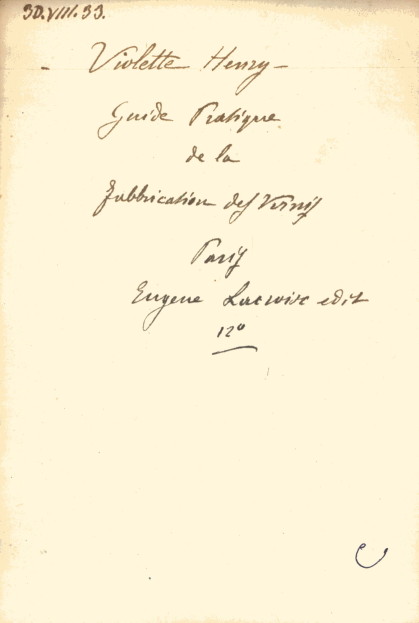 30.VIII.33.
- Violette Henry -
Guide Pratique
de la
fabbrication des Vernis
Paris
Eugene Lacroix edit
12º